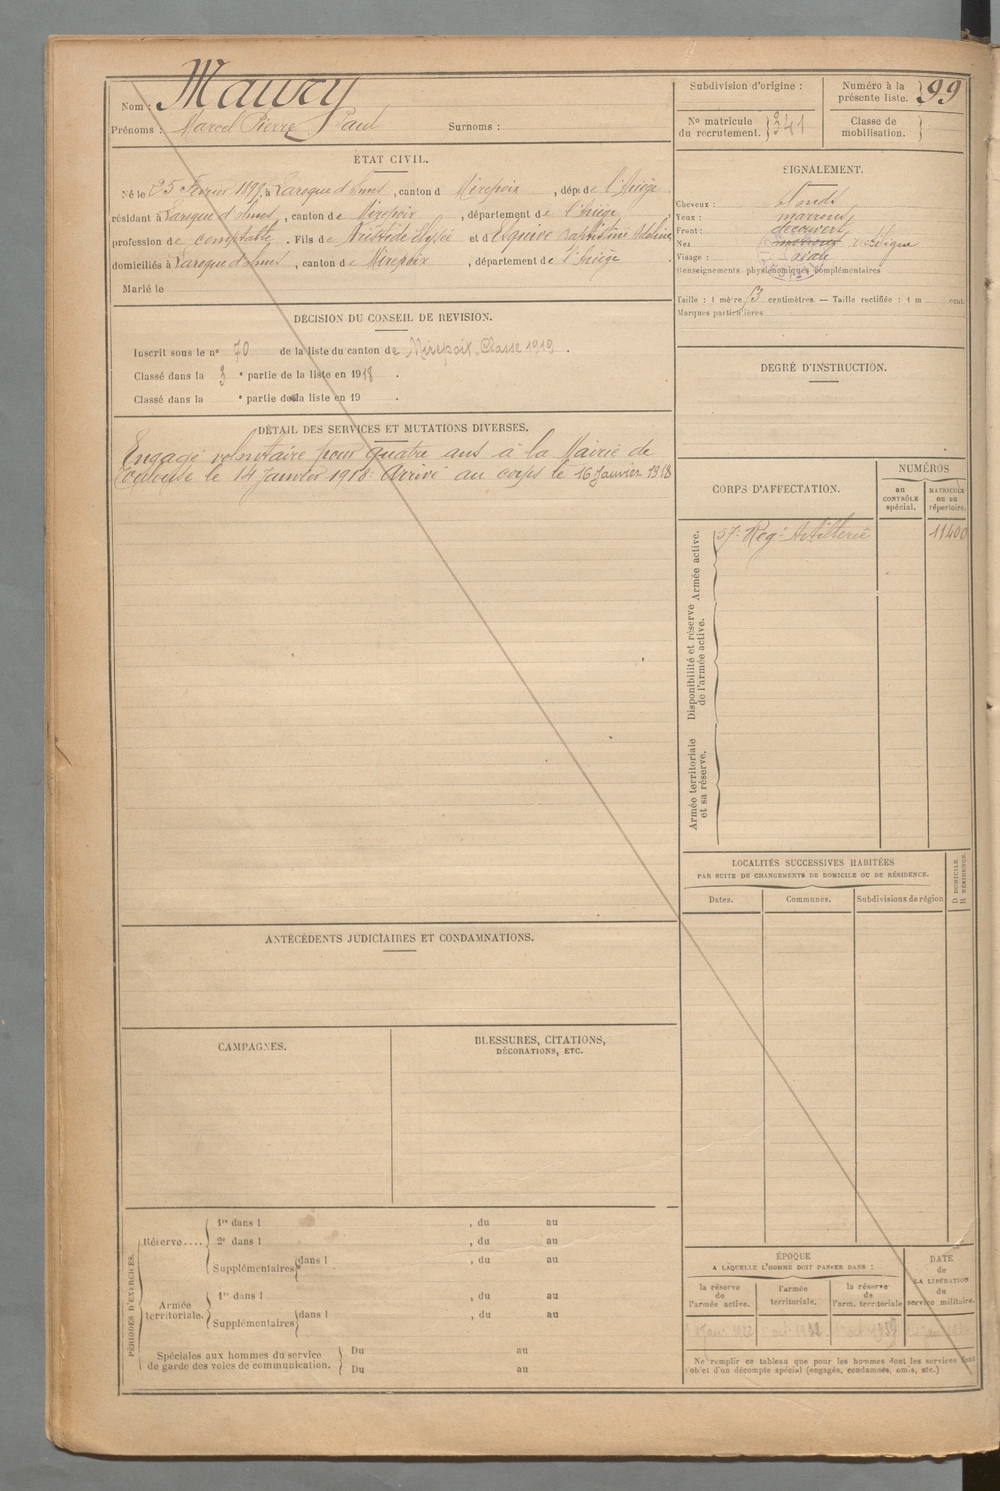 Nom : Maury
Prénoms : Marcel Pierre Paul Surnoms :
ÉTAT CIVIL.
Né le 25 Février 1899, à Laroque d'Olmes, canton d Mirepoix, dépt de l'Ariège
résidant à Laroque d'Olmes, canton de Mirepoix, département de l'Ariège,
profession de comptable. Fils de Aristide Elysée et d'Esquive Baptistine Adeline
domiciliés à Laroque d'Olmes, canton de Mirepoix, département de l'Ariège
Marié le
DÉCISION DU CONSEIL DE REVISION.
Inscrit sous le n° 70 de la liste du canton de Mirepoix Classe 1919.
Classé dans la 3 e partie de la liste en 1918.
Classé dans la e partie de la liste en 19 .
DÉTAIL DES SERVICES ET MUTATIONS DIVERSES.
Engagé volontaire pour quatre ans à la Mairie de
Toulouse le 14 Janvier 1918. Arrivé au corps le 16 Janvier 1918
ANTÉCÉDENTS JUDICIAIRES ET CONDAMNATIONS.
CAMPAGNES.
BLESSURES, CITATIONS,
DÉCORATIONS, ETC.
PÉRIODES D'EXERCICES.
Réserve....
1re dans l , du au
2e dans l , du au
Supplémentaires dans l , du au
Armée
territoriale.
1re dans l , du au
Supplémentaires dans l , du au
Spéciales aux hommes du service
de garde des voies de communication.
Du au
Du au
Subdivision d'origine :
Numéro à la
présente liste. 99
No matricule
du recrutement. 341
Classe de
mobilisation.
SIGNALEMENT.
Cheveux : blonds
Yeux : marrons
Front : découvert
Nez rectiligne
Visage : ovale
Renseignements physionomiques complémentaires
Taille : 1 mètre 73 centimètres. — Taille rectifiée : 1 m cent.
Marques particulières
DEGRÉ D'INSTRUCTION.
CORPS D'AFFECTATION.
NUMÉROS
au
CONTRÔLE
spécial.
MATRICULE
ou au
répertoire.
Armée active.
57e Rég. Artillerie 11400
Disponibilité et réserve
de l'armée active.
Armée territoriale
et sa réserve.
LOCALITÉS SUCCESSIVES HABITÉES
PAR SUITE DE CHANGEMENTS DE DOMICILE OU DE RÉSIDENCE.
D DOMICILE.
R RÉSIDENCE.
Dates. Communes. Subdivisions de région
ÉPOQUE
A LAQUELLE L'HOMME DOIT PASSER DANS :
la réserve
de
l'armée active.
l'armée
territoriale.
la réserve
de
l'arm. territoriale
DATE
de
LA LIBÉRATION
du
service militaire.
Ne remplir ce tableau que pour les hommes dont les services font
l'objet d'un décompte spécial (engagés, condamnés, omis, etc.)